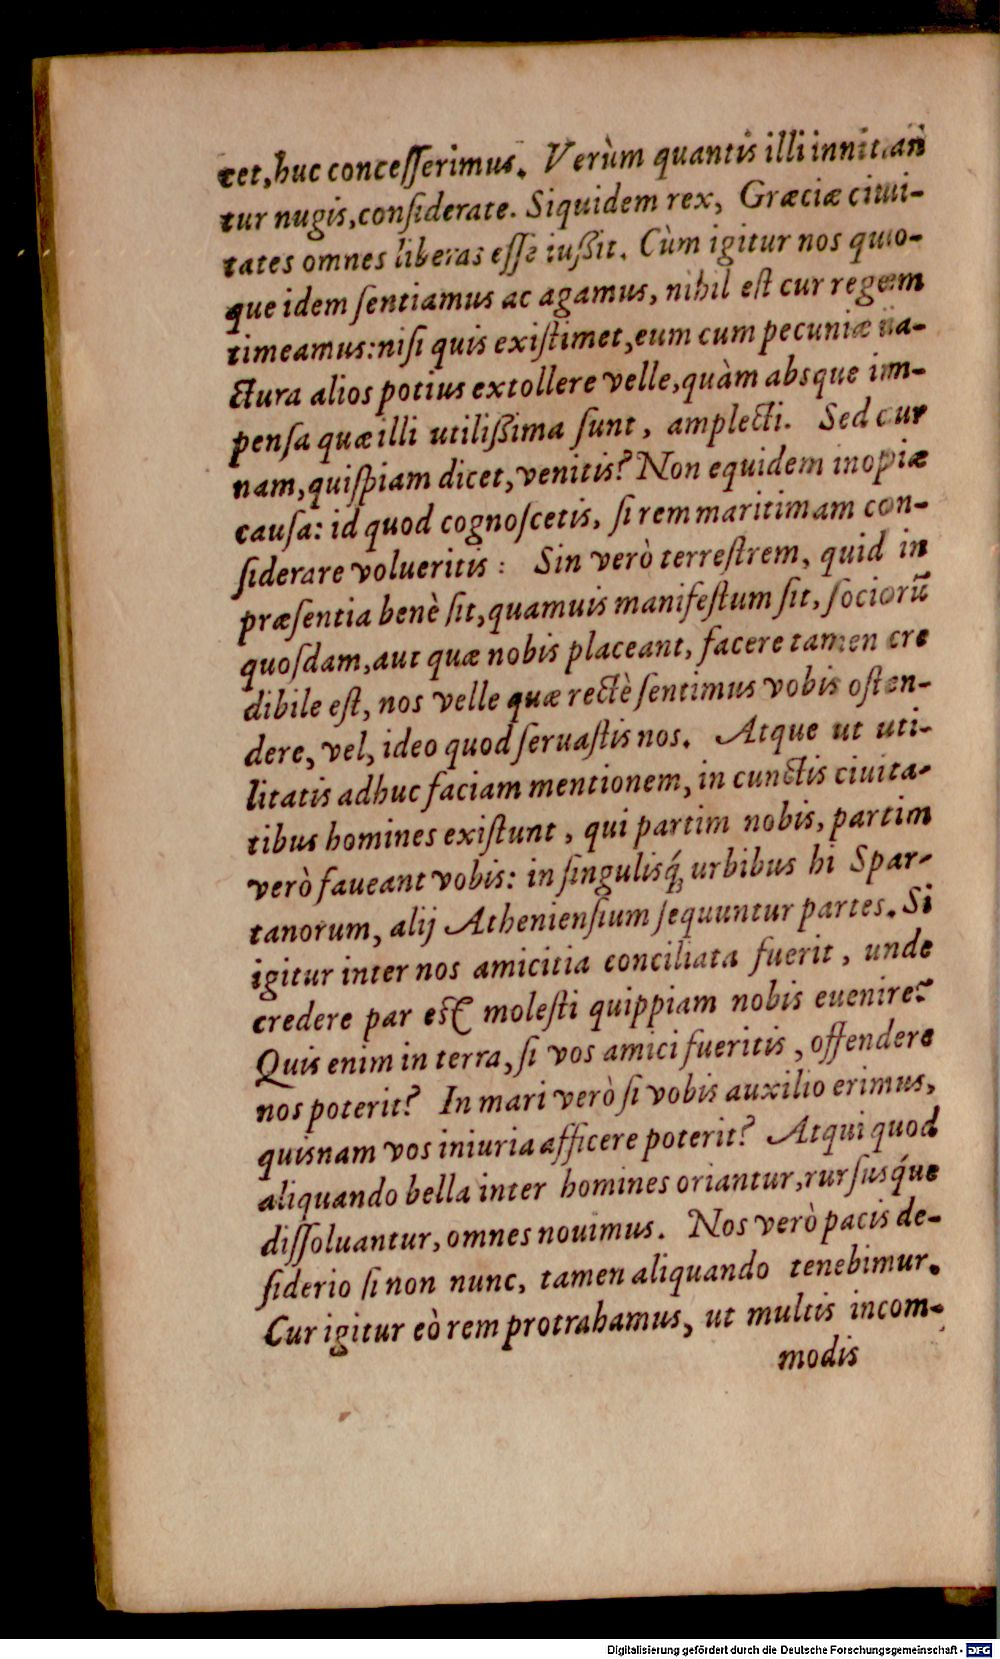 tet, huc concesserimus. Verùm quantis illi innitan
tur nugis, considerate. Siquidem rex, Græciæ ciui-
tates omnes liberas esse iußit. Cùm igitur nos quo-
que idem sentiamus ac agamus, nihil est cur regem
timeamus: nisi quis existimet, eum cum pecuniæ ia-
ctura alios potius extollere velle, quàm absque im-
pensa quæ illi utilißima sunt, amplecti. Sed cur
nam, quispiam dicet, venitis? Non equidem inopiæ
causa: id quod cognoscetis, si rem maritimam con-
siderare volueritis: Sin verò terrestrem, quid in
præsentia benè sit, quamuis manifestum sit, sociorũ
quosdam, aut quæ nobis placeant, facere tamen cre
dibile est, nos velle quæ rectè sentimus vobis osten-
dere, vel, ideo quod seruastis nos. Atque ut uti-
litatis adhuc faciam mentionem, in cunctis ciuita-
tibus homines existunt, qui partim nobis, partim
verò faueant vobis: in singulisq́; urbibus hi Spar-
tanorum, alij Atheniensium sequuntur partes. Si
igitur inter nos amicitia conciliata fuerit, unde
credere par est molesti quippiam nobis euenire?
Quis enim in terra, si vos amici fueritis, offendere
nos poterit? In mari verò si vobis auxilio erimus,
quisnam vos iniuria afficere poterit? Atqui quod
aliquando bella inter homines oriantur, rursusq́ue
dissoluantur, omnes nouimus. Nos verò pacis de-
siderio si non nunc, tamen aliquando tenebimur.
Cur igitur eò rem protrahamus, ut multis incom-
modis
Digitalisierung gefördert durch die Deutsche Forschungsgemeinschaft - DFG